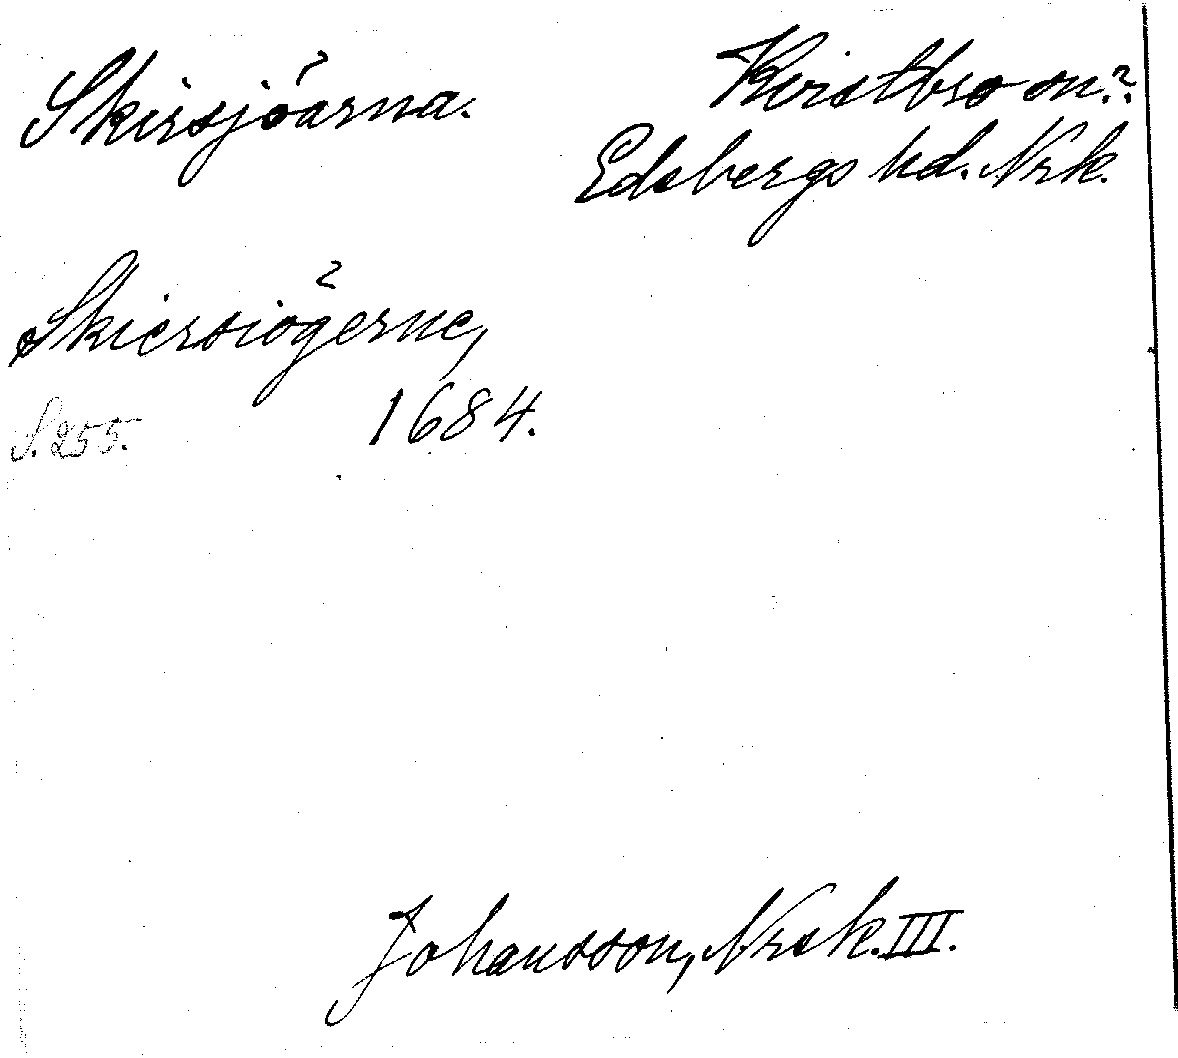 Skirsjöarna.
Kvistbro sn.?
Edsbergs hd. Nrk.
Skiersiögerne,
1684.
S. 255.
Johansson, Nrsk. III.